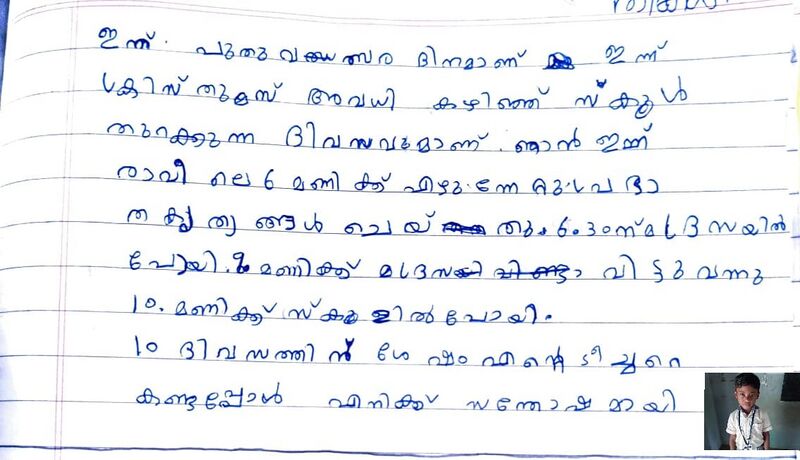 ഇന്ന്. പുതുവത്സര ദിനമാണ് ഇന്ന്
ക്രിസ്തുമസ് അവധി കഴിഞ്ഞ് സ്കൂൾ
തുറക്കുന്ന ദിവസവുമാണ്. ഞാൻ ഇന്ന്
രാവിലെ 6 മണിക്ക് എഴുന്നേറ്റു. പ്രഭാ
ത കൃത്യങ്ങൾ ചെയ്തു. 6.30ന് മദ്രസയിൽ
പോയി. മണിക്ക് മദ്രസ വിട്ടു വന്നു
10. മണിക്ക് സ്കൂളിൽ പോയി.
10 ദിവസത്തിന് ശേഷം എന്റെ ടീച്ചറെ
കണ്ടപ്പോൾ എനിക്ക് സന്തോഷമായി